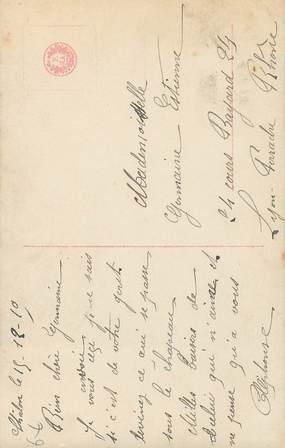 Mademoiselle
Germaine Estienne
24 cours Bayard 24
Lyon-Perrache Rhône
Châlon le 15-12-10
Bien chère Germaine
envoie
Je vous ceci je ne sais
si c'est de votre goût.
Devinez ce qui se passe
sous le chapeau
Milles baisers de
celui qui n'aime et
ne pense qu'à vous
Alphonse